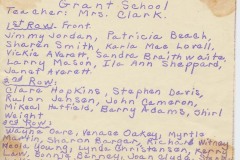 Grant School
Teacher: Mrs. Clark.
1st Row. Front
Jimmy Jordan, Patricia Beach,
Sharen Smith, Karla Mae Lovell,
Vickie Averett, Sandra Braithwaite,
Larry Mason, Ila Ann Sheppard,
Janet Averett.
2nd Row:
Clara Hopkins, Stephen Davis,
Rulon Jensen, John Cameron,
Mikeal Hatfield, Barry Adams, Shirl
Wright
3rd Row:
Wayne Dare, Venage Oakey, Myrtle
Sharon Bargar, Richard Witney
Young, Lynda Christensen, Kerry
Bonnie Borney, Joan